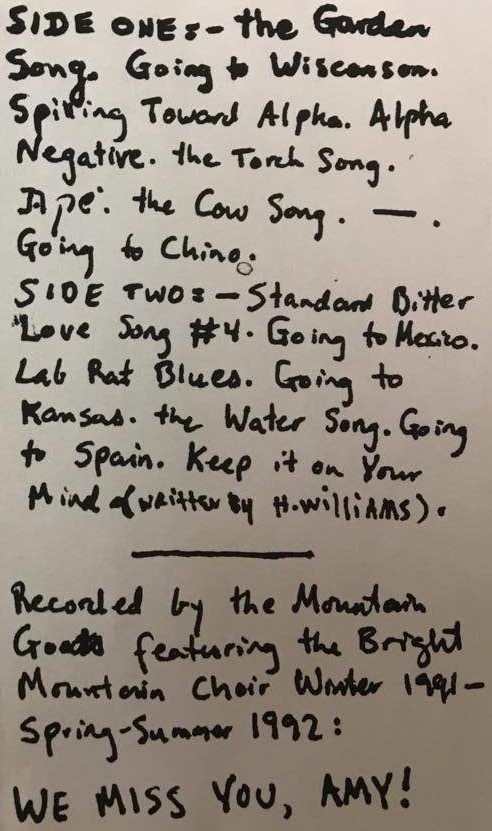 SIDE ONE:- the Garden
Song. Going to Wisconson.
Spilling Toward Alpha. Alpha
Negative. the Torch Song.
Ape. the Cow Song. — .
Going to Chino.
SIDE TWO:- Standard Bitter
Love Song #4. Going to Mexico.
Lab Rat Blues. Going to
Kansas. the Water Song. Going
to Spain. Keep it on Your
Mind (WRITTEN BY H. WILLIAMS).
Recorded by the Mountain
Goats featuring the Bright
Mountain Choir Winter 1991-
Spring-Summer 1992:
WE MISS YOU, AMY!